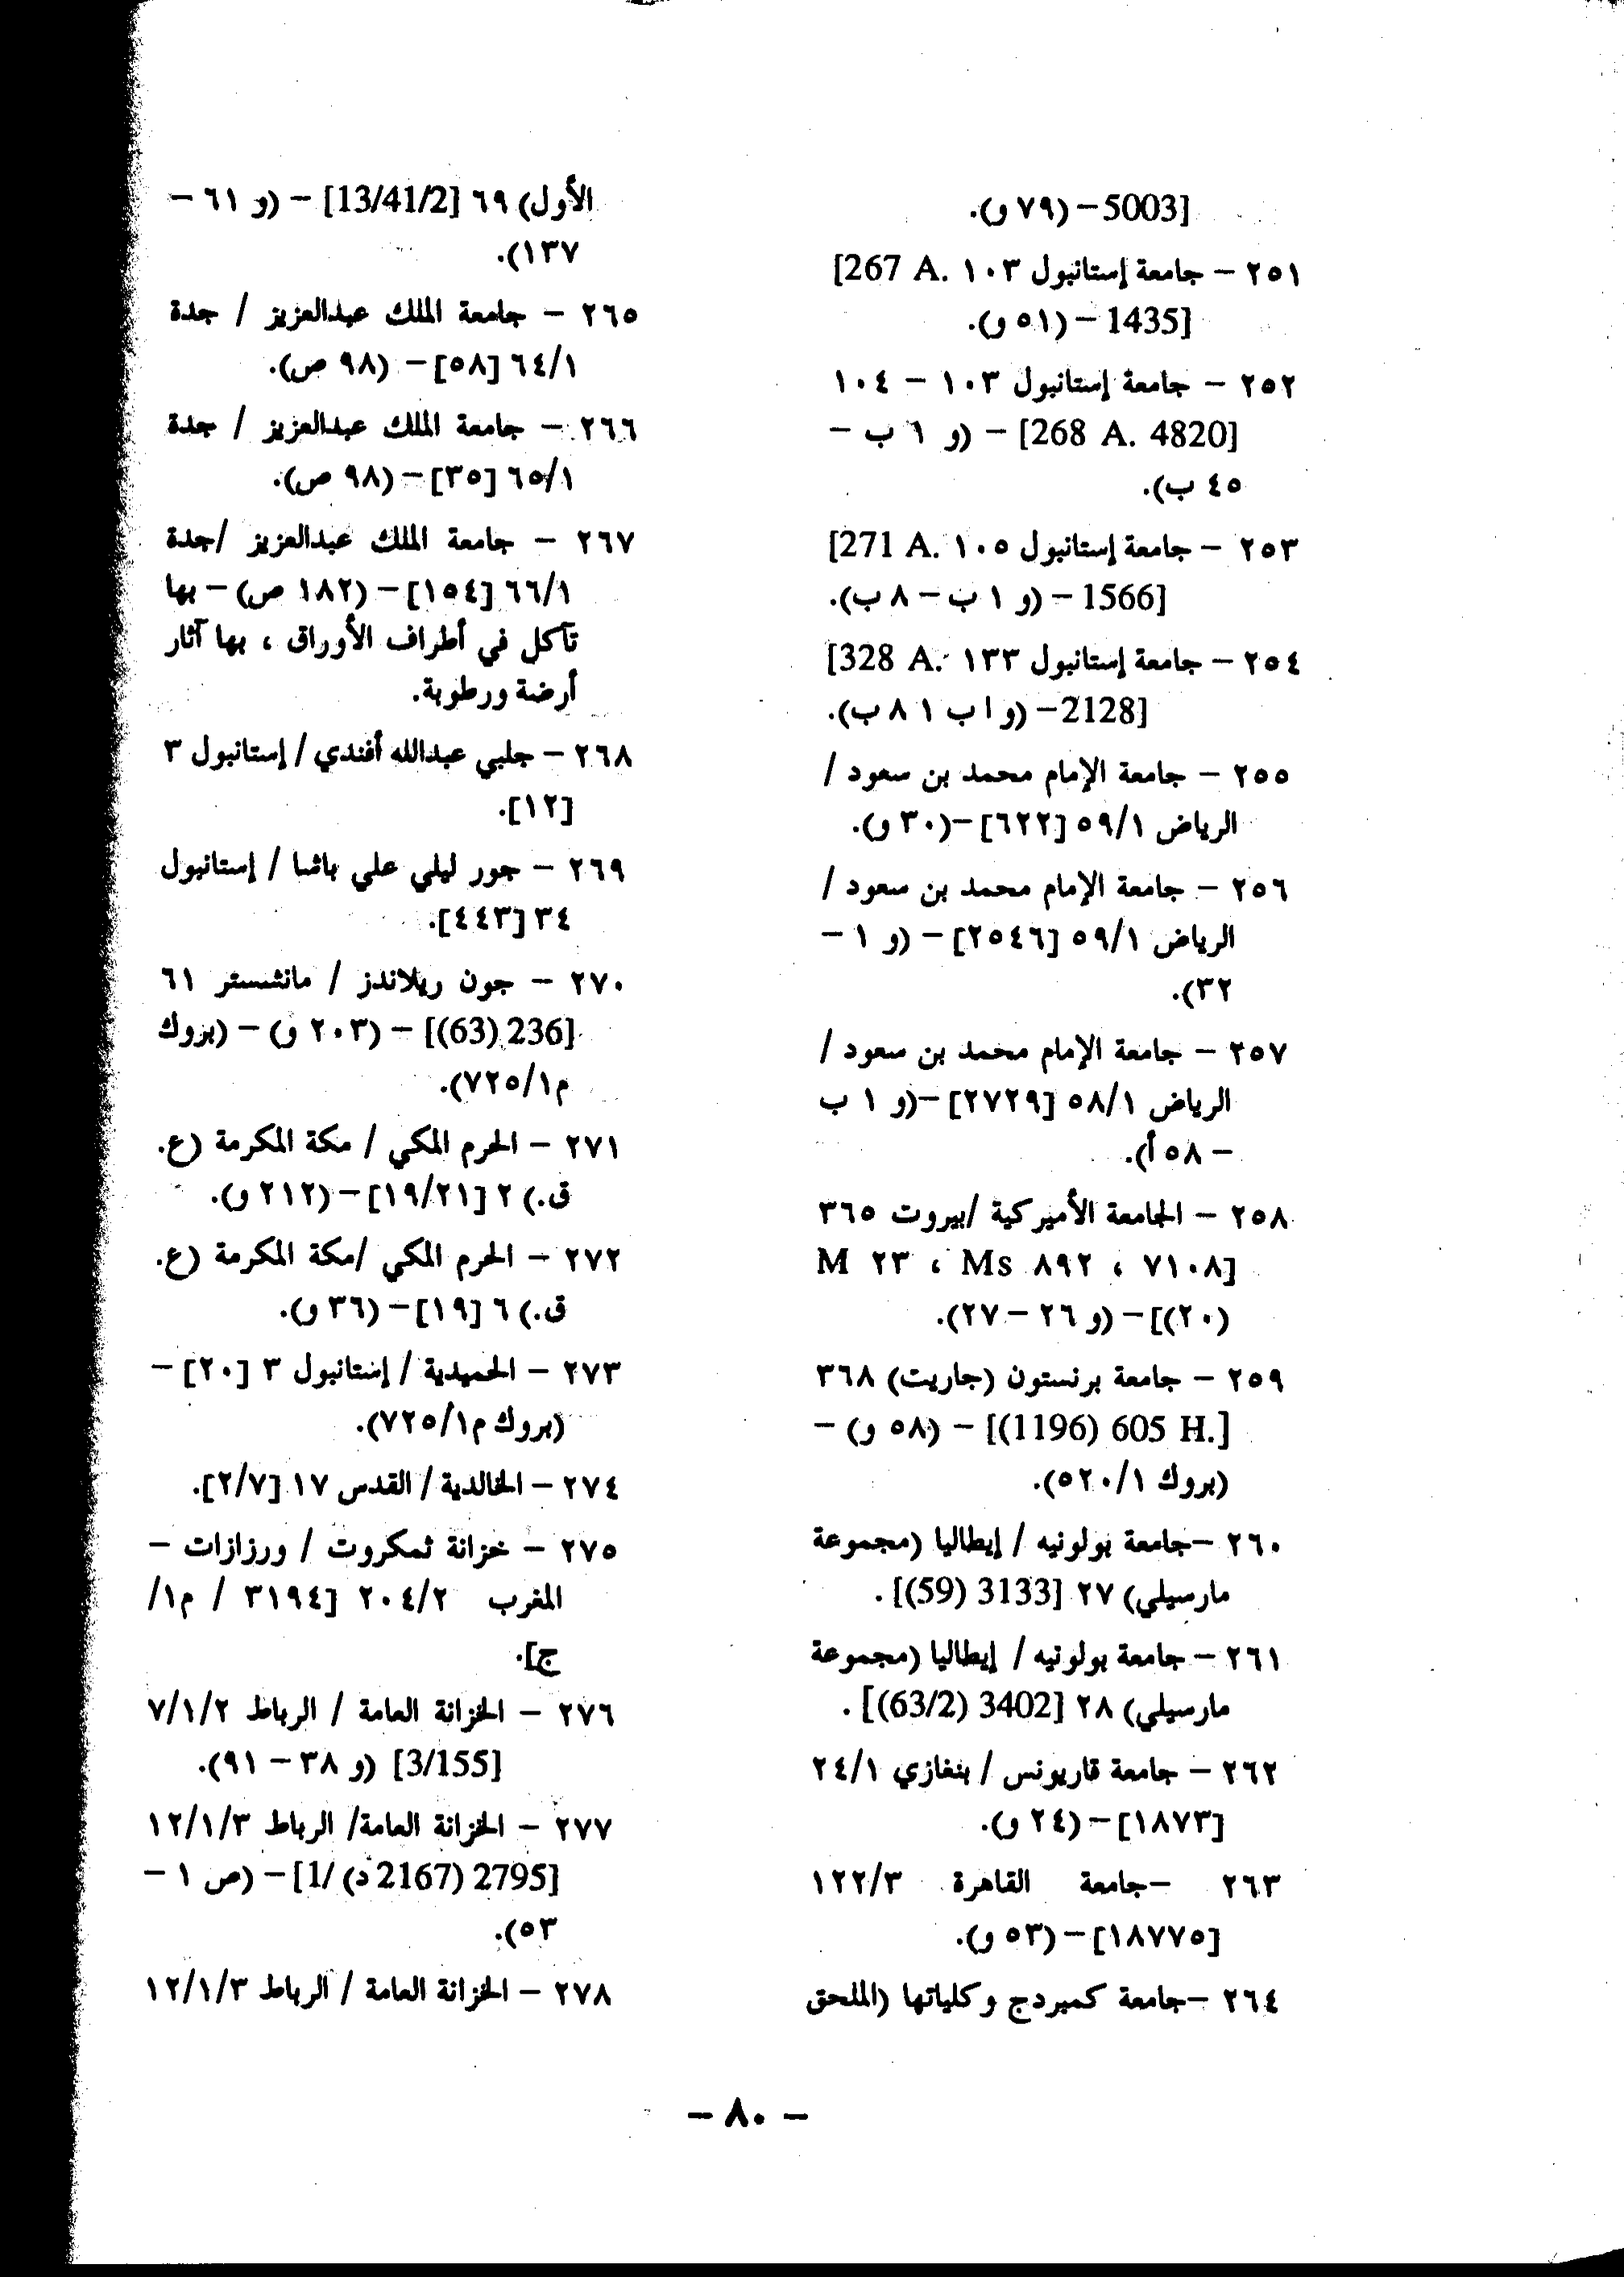 5003] – (٧٩ و).
٢٥١ – جامعة إستانبول ١٠٣ [267 A.
1435] – (٥١ و).
٢٥٢ – جامعة إستانبول ١٠٣ – ١٠٤
[268 A. 4820] – (و ٦ ب –
٤٥ ب).
٢٥٣ – جامعة إستانبول ١٠٥ [271 A.
1566] – (و ١ ب – ٨ ب).
٢٥٤ – جامعة إستانبول ١٣٣ [328 A.
2128] – (و ا ب ٨١ ب).
٢٥٥ – جامعة الإمام محمد بن سعود /
الرياض ٥٩/١ [٦٢٢] – (٣٠ و).
٢٥٦ – جامعة الإمام محمد بن سعود /
الرياض ٥٩/١ [٢٥٤٦] – (و ١ –
٣٢).
٢٥٧ – جامعة الإمام محمد بن سعود /
الرياض ٥٨/١ [٢٧٢٩] – (و ١ ب
– ٥٨ أ).
٢٥٨ – الجامعة الأميركية /بيروت ٣٦٥
[٧١٠٨ ، Ms ٨٩٢ ، M ٢٣
(٢٠)] – (و ٢٦ – ٢٧).
٢٥٩ – جامعة برنستون (جاريت) ٣٦٨
[605 H. (1196)] – (٥٨ و) –
(بروك ٥٢٠/١).
٢٦٠ –جامعة بولونيه / إيطاليا (مجموعة
مارسيلي) ٢٧ [3133 (59)] .
٢٦١ – جامعة بولونيه / إيطاليا (مجموعة
مارسيلي) ٢٨ [3402 (63/2)] .
٢٦٢ – جامعة قاريونس / بنغازي ٢٤/١
[١٨٧٣] – (٢٤ و).
٢٦٣ –جامعة القاهرة ١٢٢/٣
[١٨٧٧٥] – (٥٣ و).
٢٦٤ –جامعة كمبردج وكلياتها (الملحق
الأول) ٦٩ [13/41/2] – (و ٦١ –
١٣٧).
٢٦٥ – جامعة الملك عبدالعزيز / جدة
٦٤/١ [٥٨] – (٩٨ ص).
٢٦٦ – جامعة الملك عبدالعزيز / جدة
٦٥/١ [٣٥] – (٩٨ ص).
٢٦٧ – جامعة الملك عبدالعزيز /جدة
٦٦/١ [١٥٤] – (١٨٢ ص) – بها
تآكل في أطراف الأوراق ، بها آثار
أرضة ورطوبة.
٢٦٨ – جلبي عبدالله أفندي / إستانبول ٣
[١٢].
٢٦٩ – جور ليلي علي باشا / إستانبول
٣٤ [٤٤٣].
٢٧٠ – جون ريلاندز / مانشستر ٦١
[236 (63)] – (٢٠٣ و) – (بروك
م٧٢٥/١).
٢٧١ – الحرم المكي / مكة المكرمة (ع.
ق.) ٢ [١٩/٢١] – (٢١٢ و).
٢٧٢ – الحرم المكي /مكة المكرمة (ع.
ق.) ٦ [١٩] – (٣٦ و).
٢٧٣ – الحميدية / إستانبول ٣ [٢٠] –
(بروك م٧٢٥/١).
٢٧٤ – الخالدية / القدس ١٧ [٢/٧].
٢٧٥ – خزانة ثمكروت / ورزازات –
المغرب ٢٠٤/٢ [٣١٩٤ / م١/
ج].
٢٧٦ – الخزانة العامة / الرباط ٧/١/٢
[3/155] (و ٣٨ – ٩١).
٢٧٧ – الخزانة العامة/ الرباط ١٢/١/٣
[2795 (2167 د) /1] – (ص ١ –
٥٣).
٢٧٨ – الخزانة العامة / الرباط ١٢/١/٣
– ٨٠ –